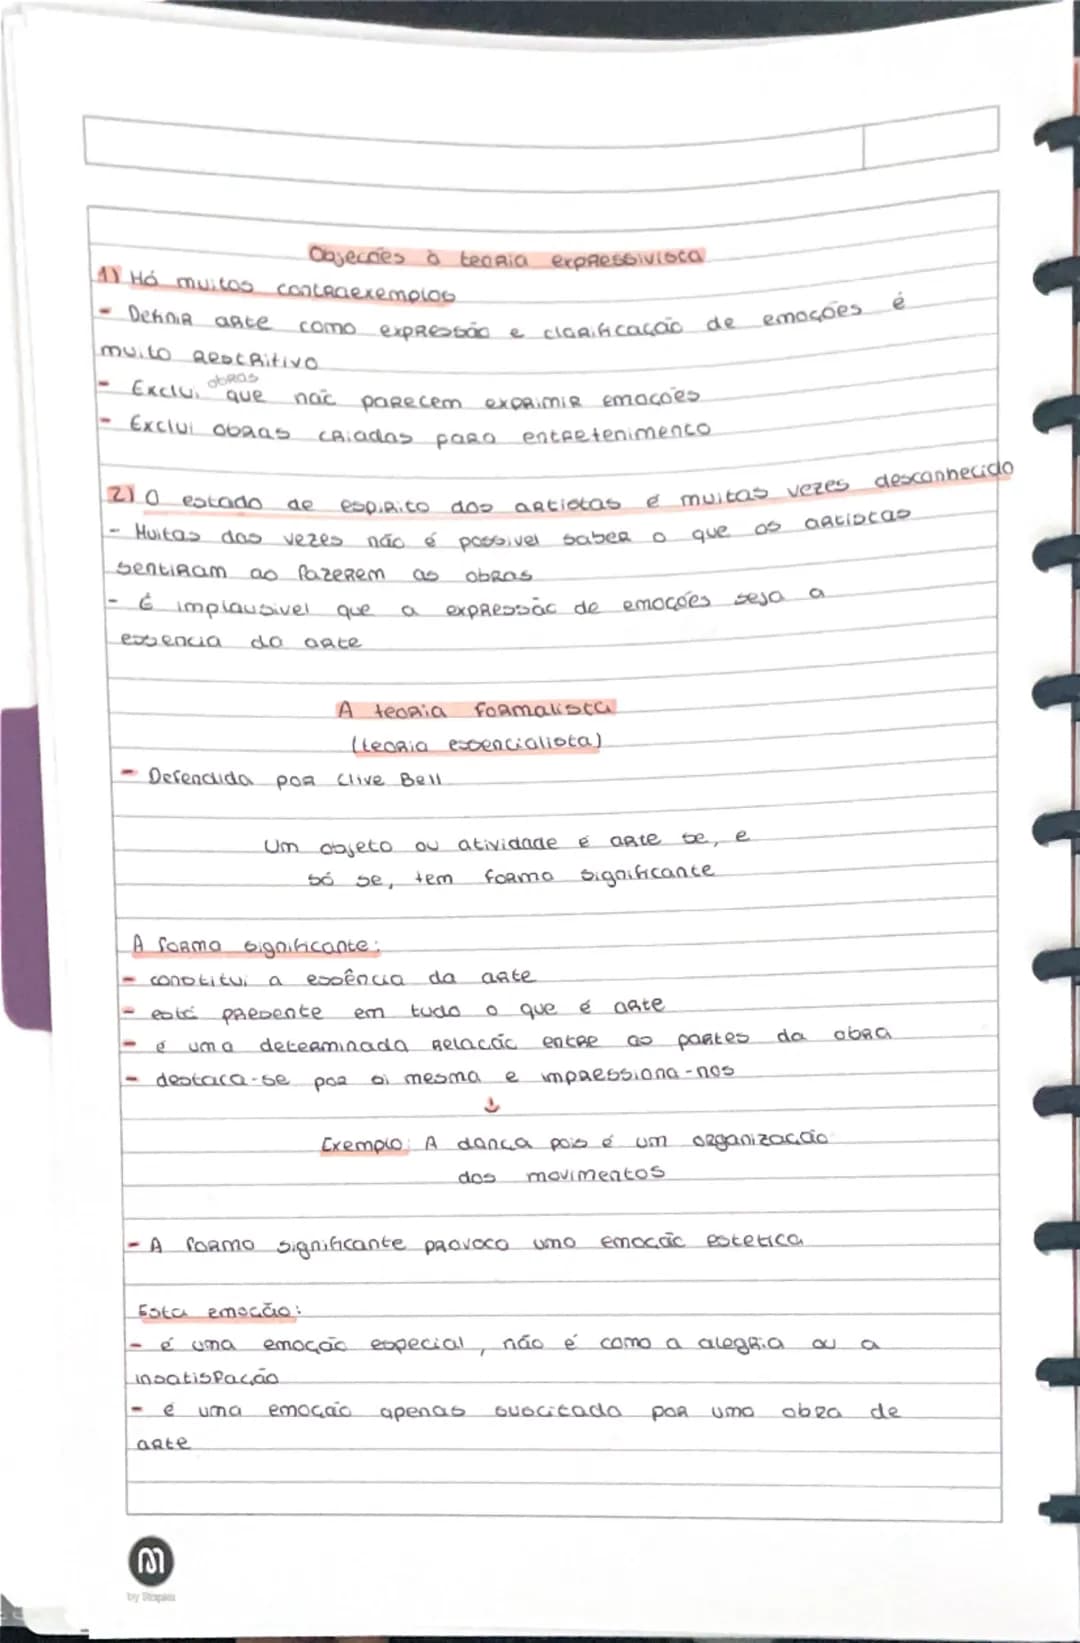 Objecções à teoria expressivista
1) Há muitos contraexemplos
- Definir arte como expressão e clarificação de emoções é
muito restritivo
obras
- Exclui que não parecem exprimir emoções
- Exclui obras criadas para entretenimento
2) O estado de espirito dos artistas é muitas vezes desconhecido
- Muitas das vezes não é possivel saber o que os artistas
sentiram ao fazerem as obras
- É implausivel que a expressão de emoções seja a
essencia da arte
A teoria formalista
(teoria essencialista)
- Defendida por Clive Bell
Um objeto ou atividade é arte se, e
só se, tem forma significante
A forma significante:
- constitui a essência da arte
- está presente em tudo o que é arte
- é uma determinada relação entre as partes da obra
- destaca-se por si mesma e impressiona-nos
↓
Exemplo: A dança pois é um organização
dos movimentos
- A forma significante provoca uma emoção estetica
Esta emoção:
- é uma emoção especial, não é como a alegria ou a
insatisfação
- é uma emoção apenas suscitada por uma obra de
arte
by Staples